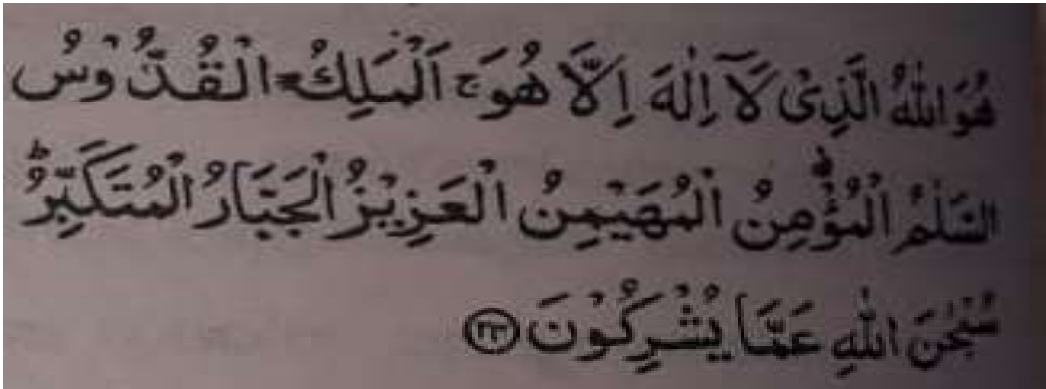 هُوَ اللهُ الَّذِیْ لَآ اِلٰهَ اِلَّا هُوَ ۚ اَلْمَلِكُ الْقُدُّوْسُ
السَّلٰمُ الْمُؤْمِنُ الْمُهَیْمِنُ الْعَزِیْزُ الْجَبَّارُ الْمُتَكَبِّرُ ؕ
سُبْحٰنَ اللهِ عَمَّا یُشْرِكُوْنَ ﴿۲۳﴾